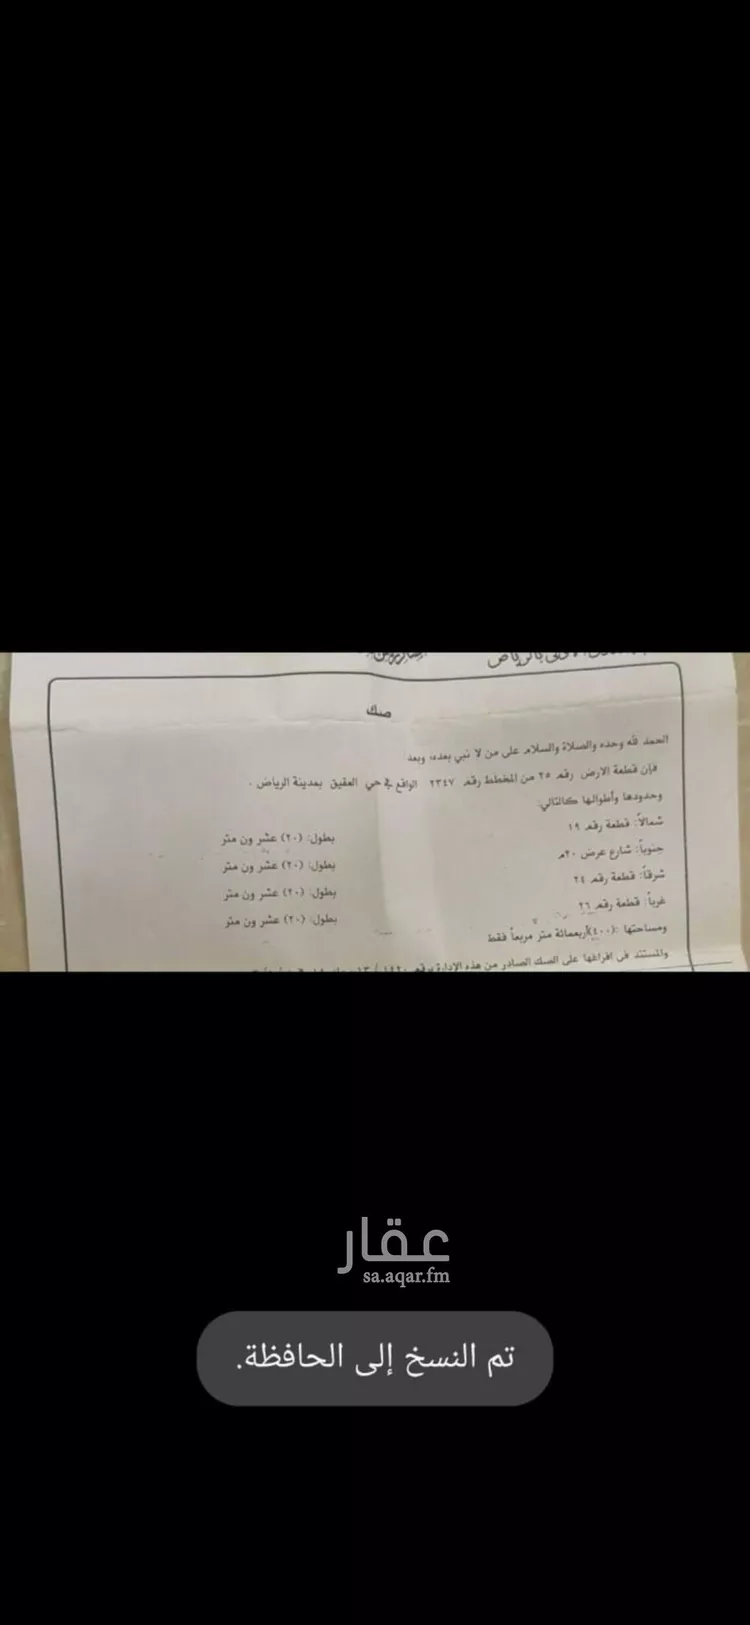 بالرياض
صك
الحمد لله وحده والصلاة والسلام على من لا نبي بعده، وبعد
فإن قطعة الارض رقم ٢٥ من المخطط رقم ٢٣٤٧ الواقع في حي العقيق بمدينة الرياض .
وحدودها وأطوالها كالتالي:
شمالاً: قطعة رقم ١٩ بطول: (٢٠) عشر ون متر
جنوباً: شارع عرض ٢٠م بطول: (٢٠) عشر ون متر
شرقاً: قطعة رقم ٢٤ بطول: (٢٠) عشر ون متر
غرباً: قطعة رقم ٢٦ بطول: (٢٠) عشر ون متر
ومساحتها :(٤٠٠) أربعمائة متر مربعاً فقط
والمستند في افراغها على الصك الصادر من هذه الإدارة برقم
عقار
sa.aqar.fm
تم النسخ إلى الحافظة.